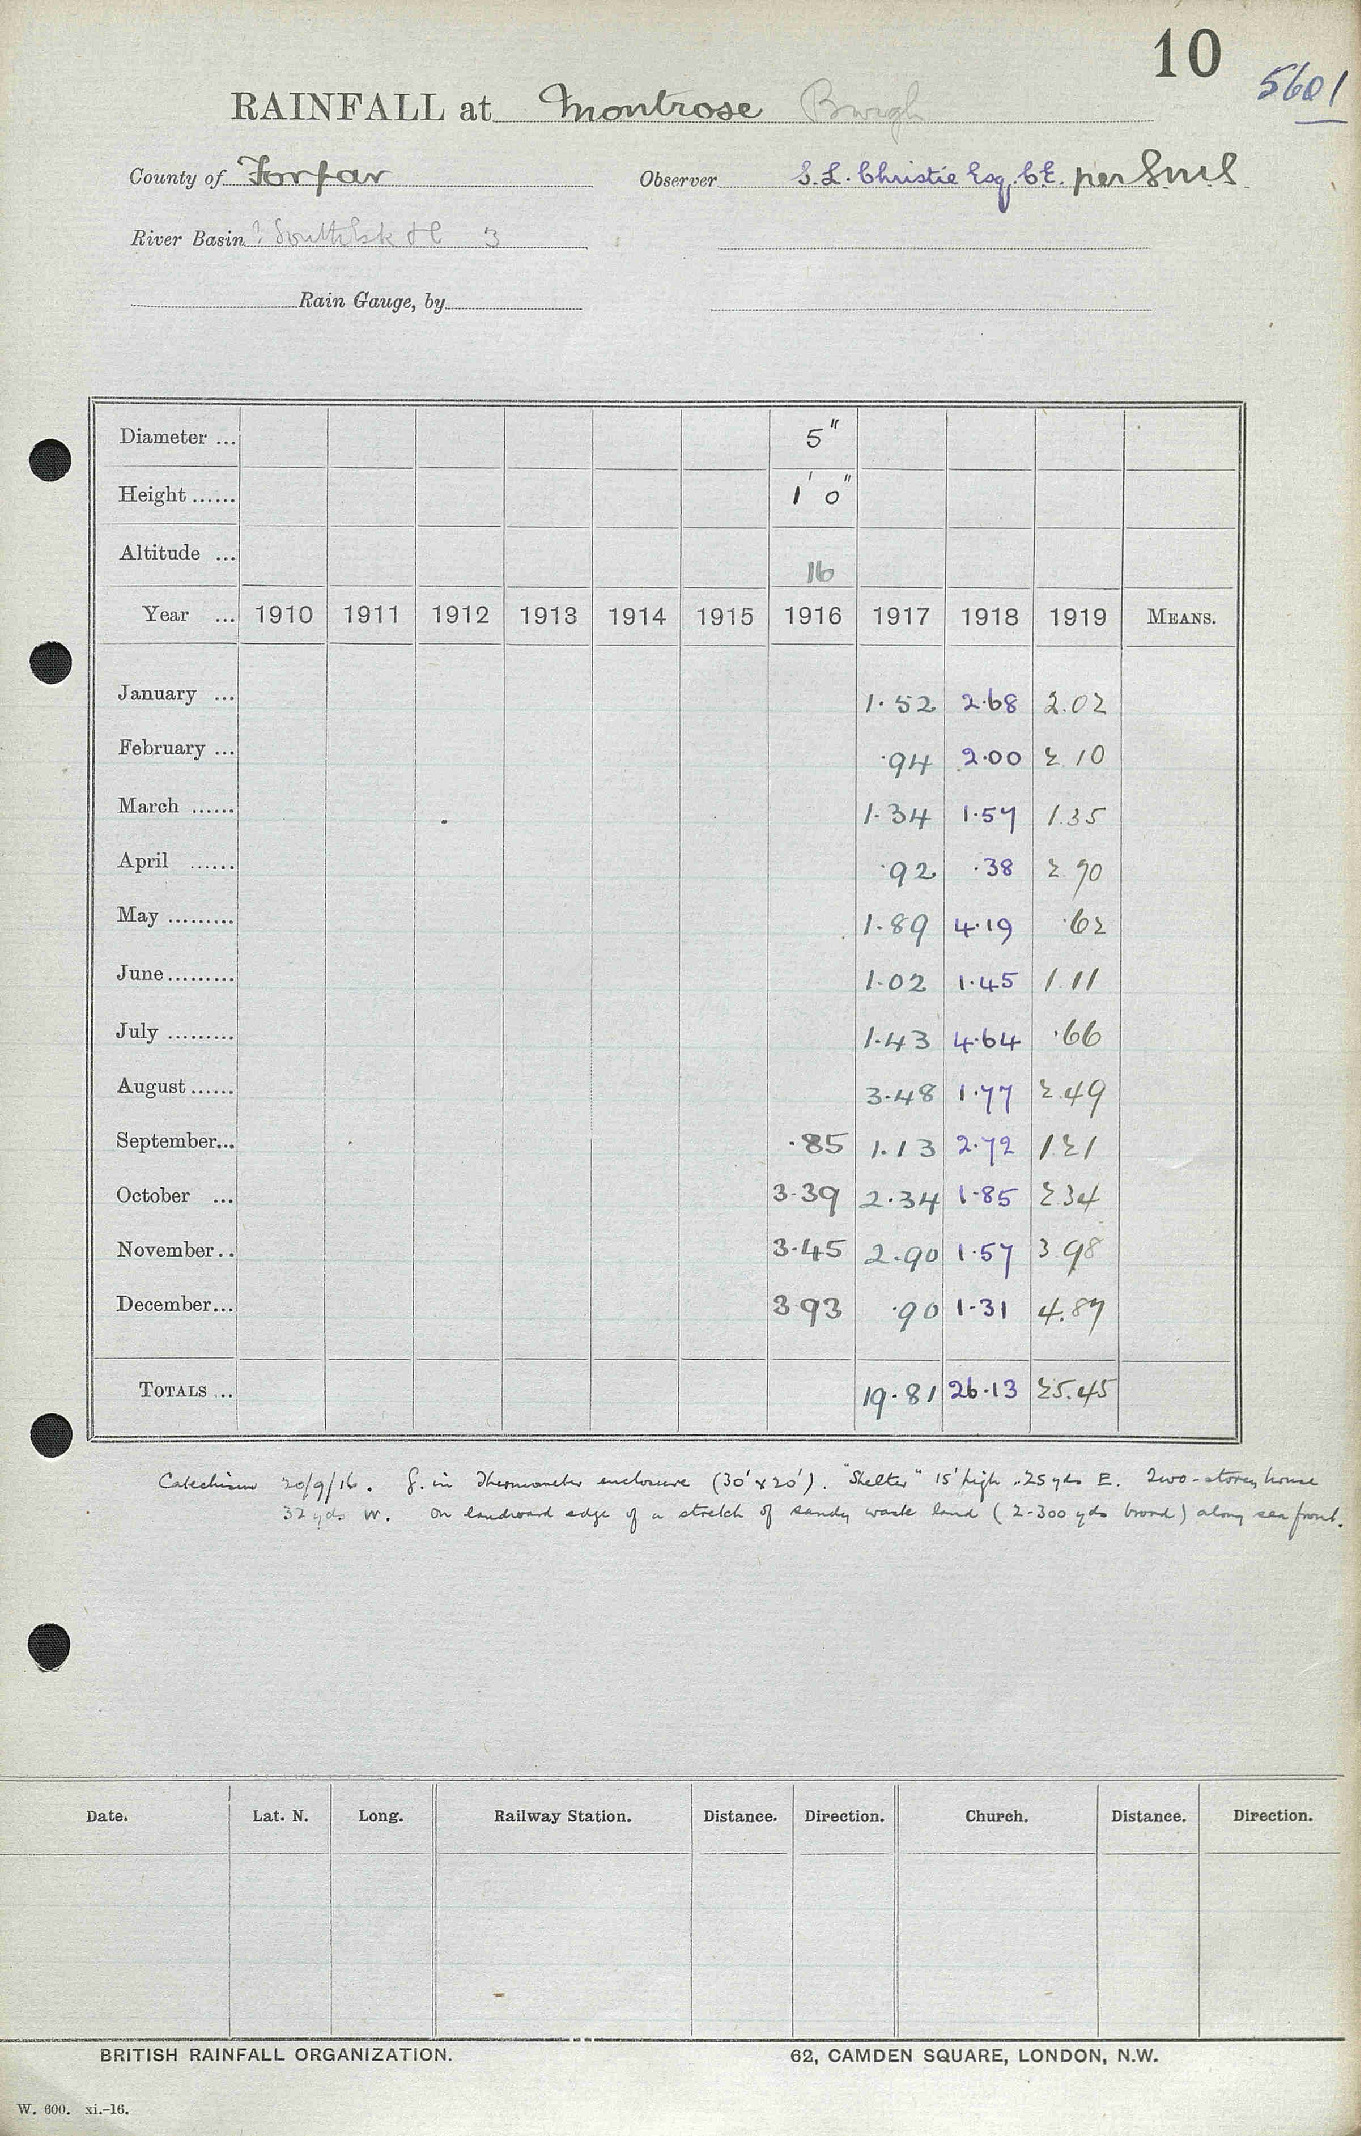 10
5601
RAINFALL at Montrose Burgh
County of Forfar Observer S. L. Christie Esq. C.E. per
River Basin ? South Esk &c 3
Rain Gauge, by
Diameter ... 5"
Height ...... 1' 0"
Altitude ... 16
Year ... 1910 1911 1912 1913 1914 1915 1916 1917 1918 1919 MEANS.
January ... 1.52 2.68 2.02
February ... .94 2.00 2 10
March ...... 1.34 1.57 1.35
April ...... .92 .38 2 70
May ......... 1.89 4.19 .62
June ......... 1.02 1.45 1 11
July ......... 1.43 4.64 .66
August ...... 3.48 1.77 2.49
September... .85 1.13 2.72 1.21
October ... 3.39 2.34 1.85 2.34
November .. 3.45 2.90 1.57 3 98
December... 3 93 .90 1.31 4.87
TOTALS ... 19.81 26.13 25.45
Catechism 20/9/16. G. in Thermometer enclosure (30' x 20'). "Shelter" 15' high, 25 yds E. Two-storey house
32 yds W. On landward edge of a stretch of sandy waste land (2-300 yds broad) along sea front.
Date. Lat. N. Long. Railway Station. Distance. Direction. Church. Distance. Direction.
BRITISH RAINFALL ORGANIZATION. 62, CAMDEN SQUARE, LONDON, N.W.
W. 600. xi.-16.